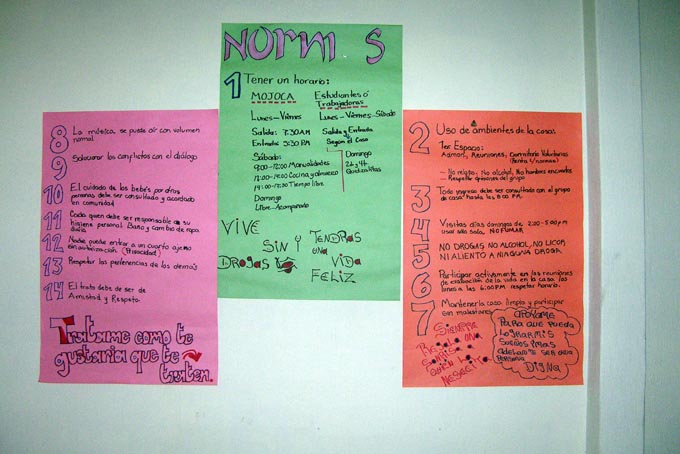 NORM S
1 Tener un horario:
MOJOCA
Lunes - Viernes
Salida: 7:30AM
Entrada: 5:30 PM
Estudiantes ó
Trabajadoras
Lunes - Viernes - Sábado
Salida y Entrada
Según el Caso
Sábado:
9:00 - 12:00 Manualidades
12:00 - 14:00 Cocina y almuerzo
14:00 - 17:30 Tiempo libre
Domingo
Libre - Acompañado
Domingo
VIVE
SIN
DROGAS
Y
TENDRAS
una
VIDA
FELIZ
8 La música, se puede oir con volumen
normal
9 Solucionar los conflictos con el diálogo
10 El cuidado de los bebé's por otras
personas debe ser consultado y acordado
en comunidad
11 Cada quien debe ser responsable de su
higiene personal. Baño y cambio de ropa
diaria
12 Nadie puede entrar a un cuarto ajeno
sin autorización (Privacidad)
13 Respetar las preferencias de los demás
14 El trato debe de ser de
Amistad y Respeto.
Tratame como te
gustaria que te
traten.
2 Uso de ambientes de la casa:
1er Espacio:
Admon, Reuniones, Dormitorio Voluntarias
- No mixto. No alcohol, No hombres
- Respetar opiniones del grupo
3 Todo ingreso debe ser consultado con el grupo
de casa hasta las 8:00 PM.
4 Visitas días domingos de 2:00 - 5:00 pm
usar sólo sala, NO FUMAR
5 NO DROGAS NO ALCOHOL, NO LICOR
NI ALIENTO A NINGUNA DROGA
6 Participar activamente en las reuniones
de evaluación de la vida en la casa los
lunes a las 6:00PM respetar horario.
7 Mantener la casa limpia y participar
sin malestares
SIEMPRE
Regala una
sonrisa
NESECITA
APOYAME
PARA QUE PUEDA
LOGRAR MIS
SUEÑOS
adelante SER una
persona
DIGNA